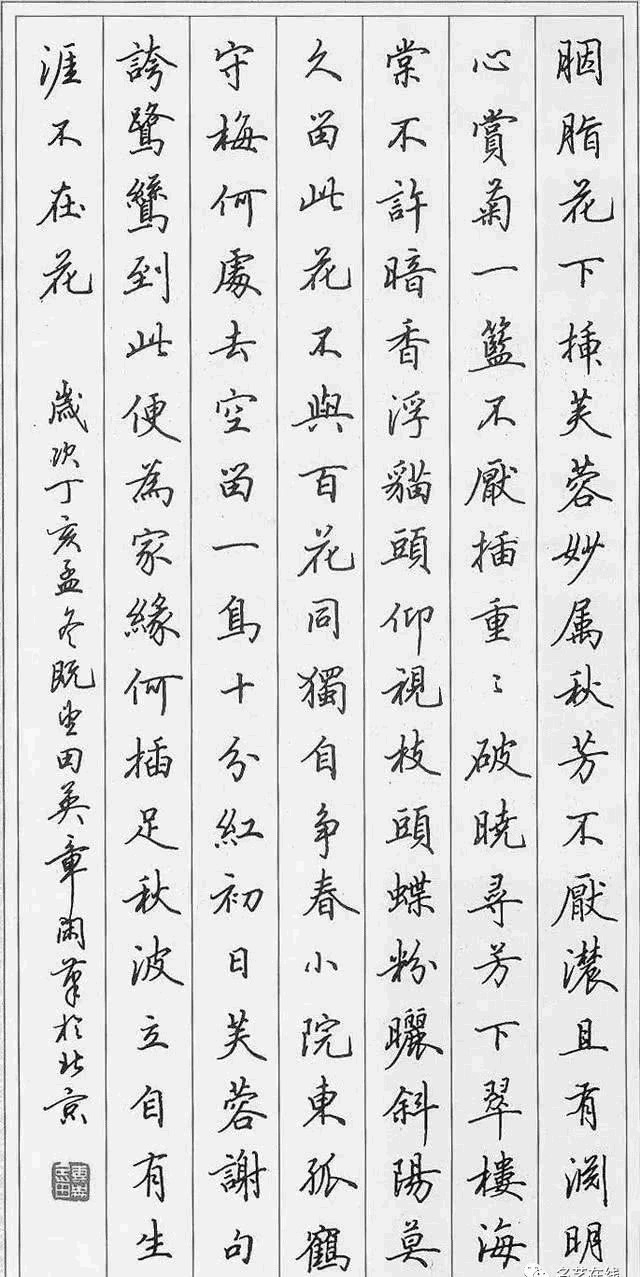 胭脂花下挿芙蓉妙属秋芳不厭濃且有渕明
心賞菊一籃不厭插重〻破曉尋芳下翠樓海
棠不許暗香浮貓頭仰視枝頭蝶粉曬斜陽莫
久留此花不與百花同獨自争春小院東孤鶴
守梅何處去空留一鳥十分紅初日芙蓉謝句
誇鷺鷥到此便為家緣何插足秋波立自有生
涯不在花
歲次丁亥孟冬既望田英章閑筆於北京
名艺在线